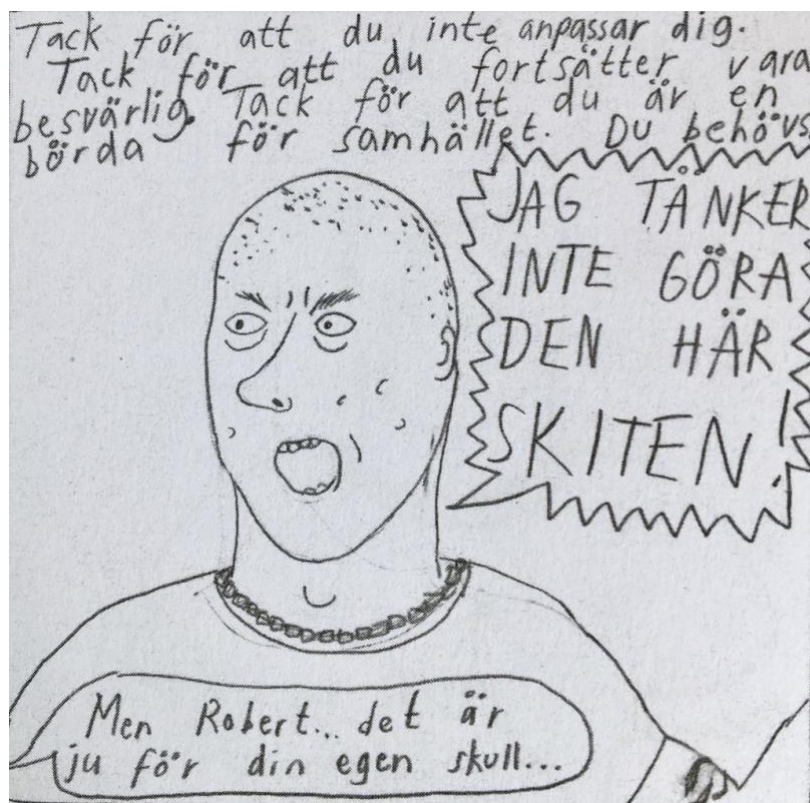 Tack för att du inte anpassar dig.
Tack för att du fortsätter vara
besvärlig. Tack för att du är en
börda för samhället. Du behövs
JAG TÄNKER
INTE GÖRA
DEN HÄR
SKITEN!
Men Robert... det är
ju för din egen skull...